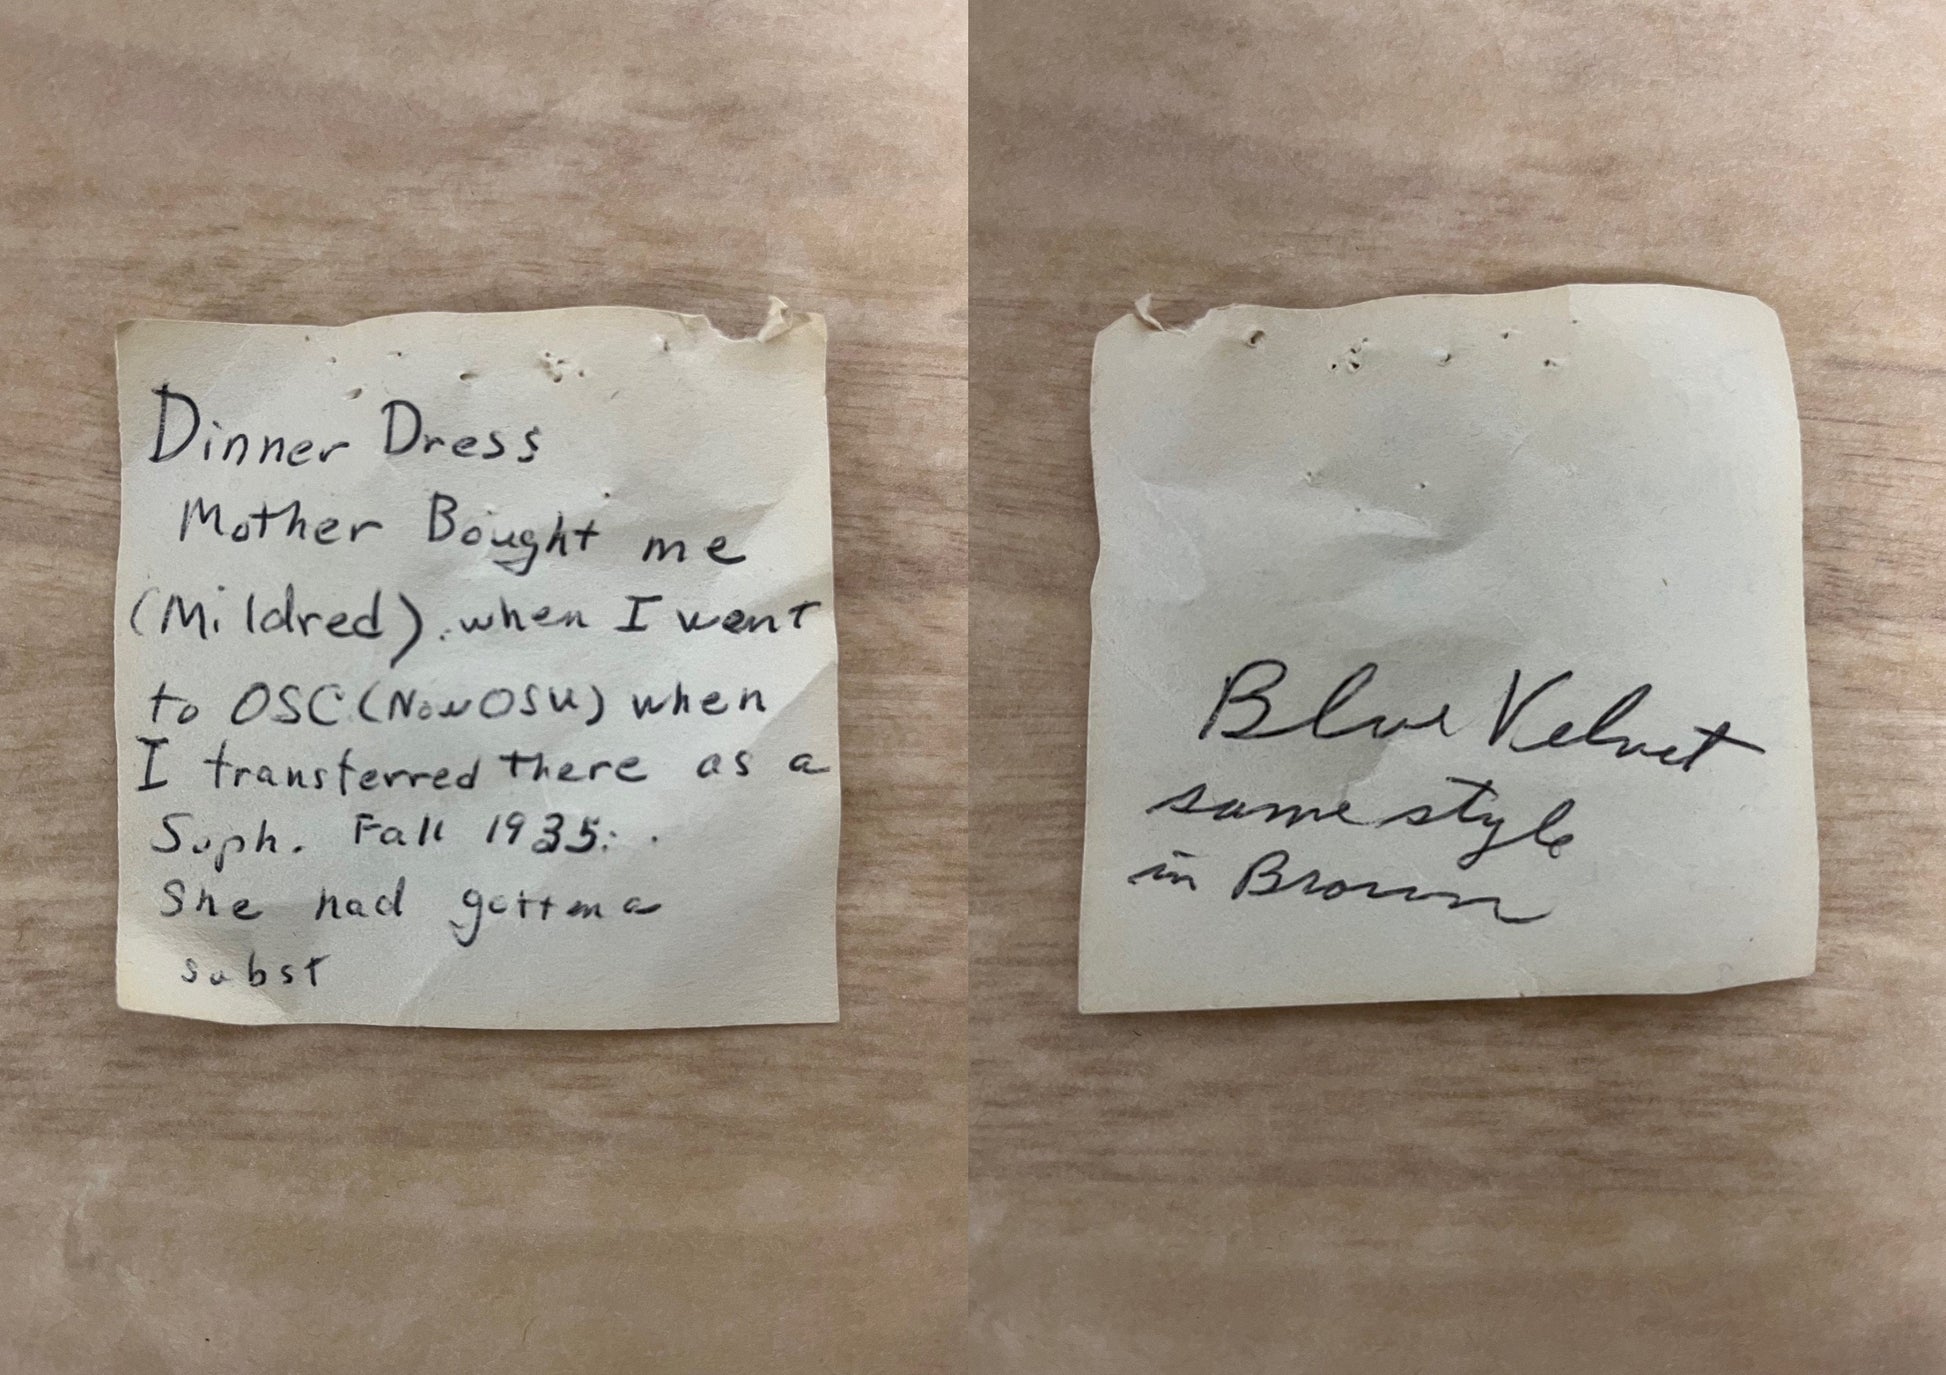 Dinner Dress
Mother Bought me
(Mildred). when I went
to OSC (Now OSU) when
I transferred there as a
Soph. Fall 1935.
She had gotten a
subst
Blue Velvet
same style
in Brown